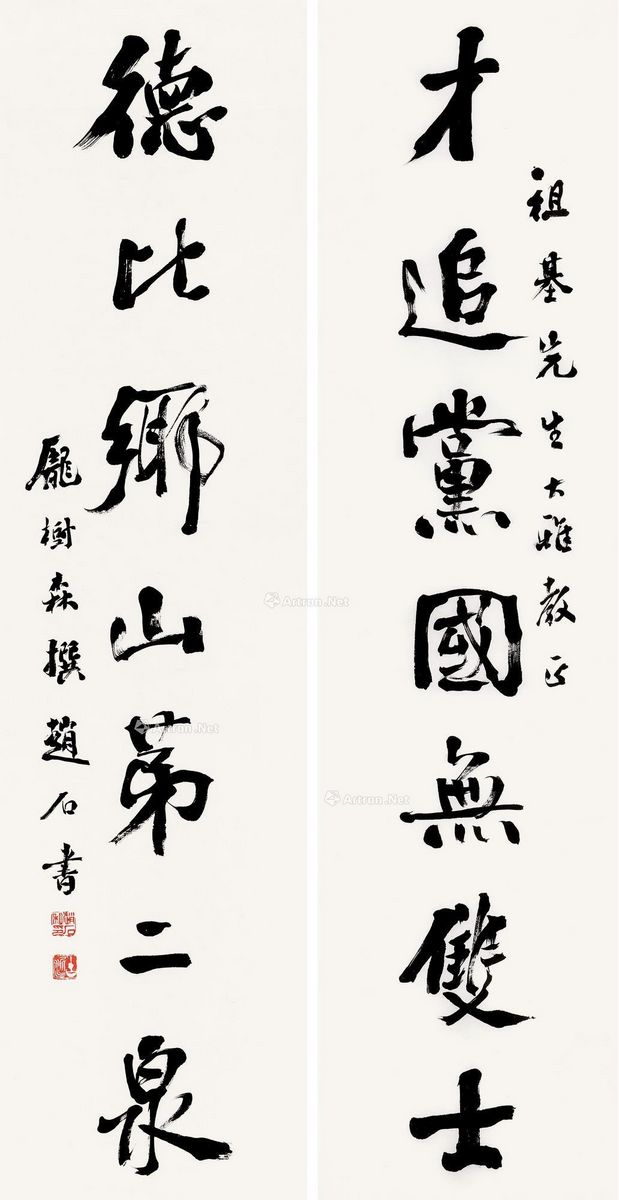 祖基先生大雅教正
才追黨國無雙士
德比鄉山第二泉
龐樹森撰趙石書
Artron.Net
Artron.Net
Artron.Net